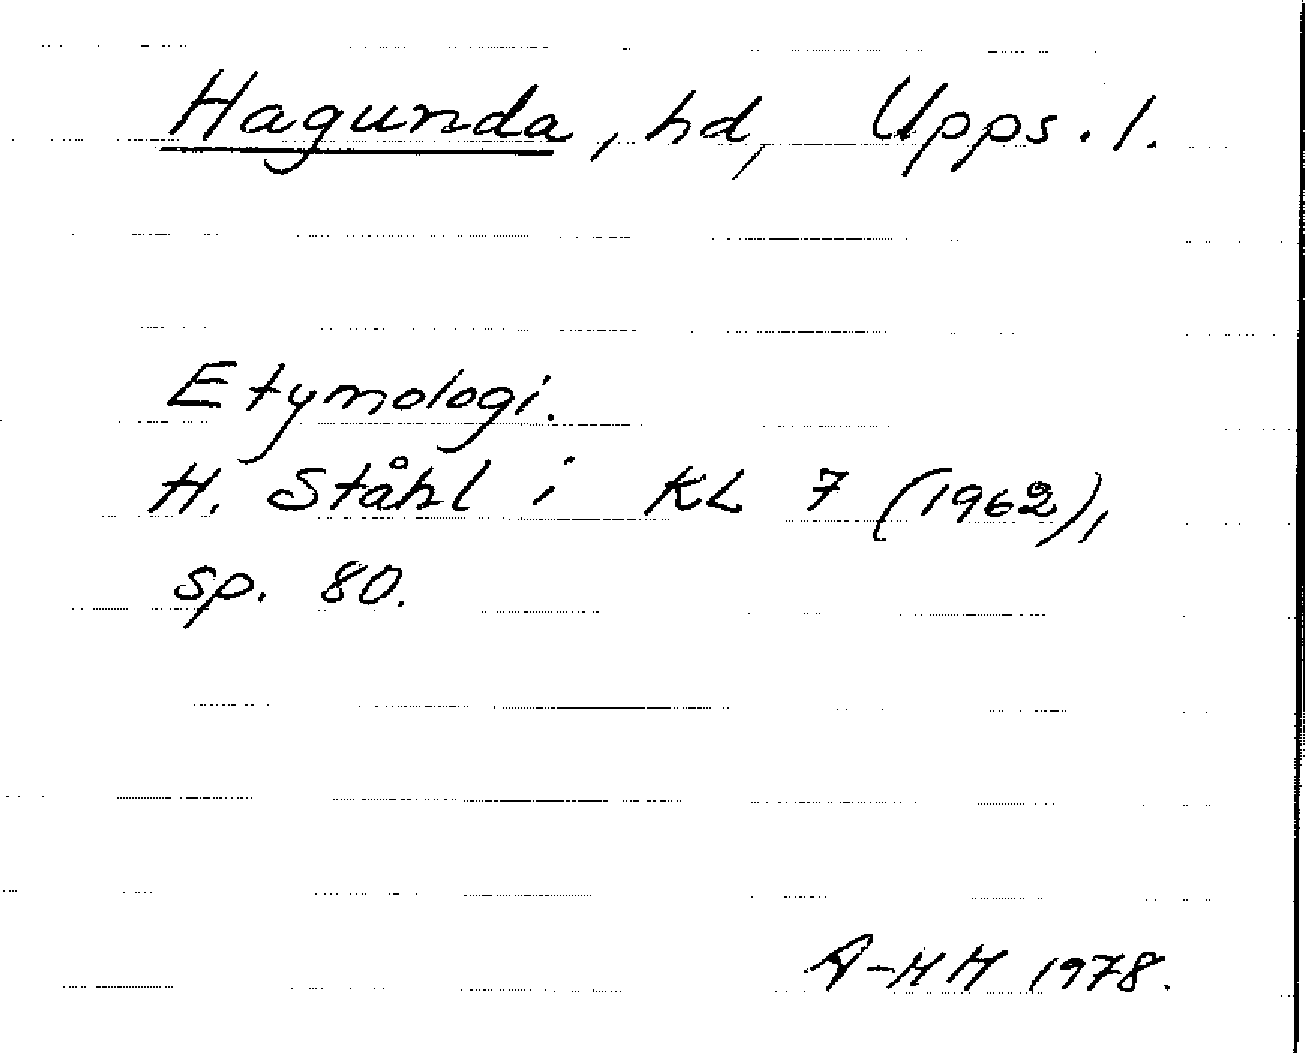 Hagunda, hd, Upps. l.
Etymologi.
H. Ståhl i KL 7 (1962),
sp. 80.
A-MM 1978.